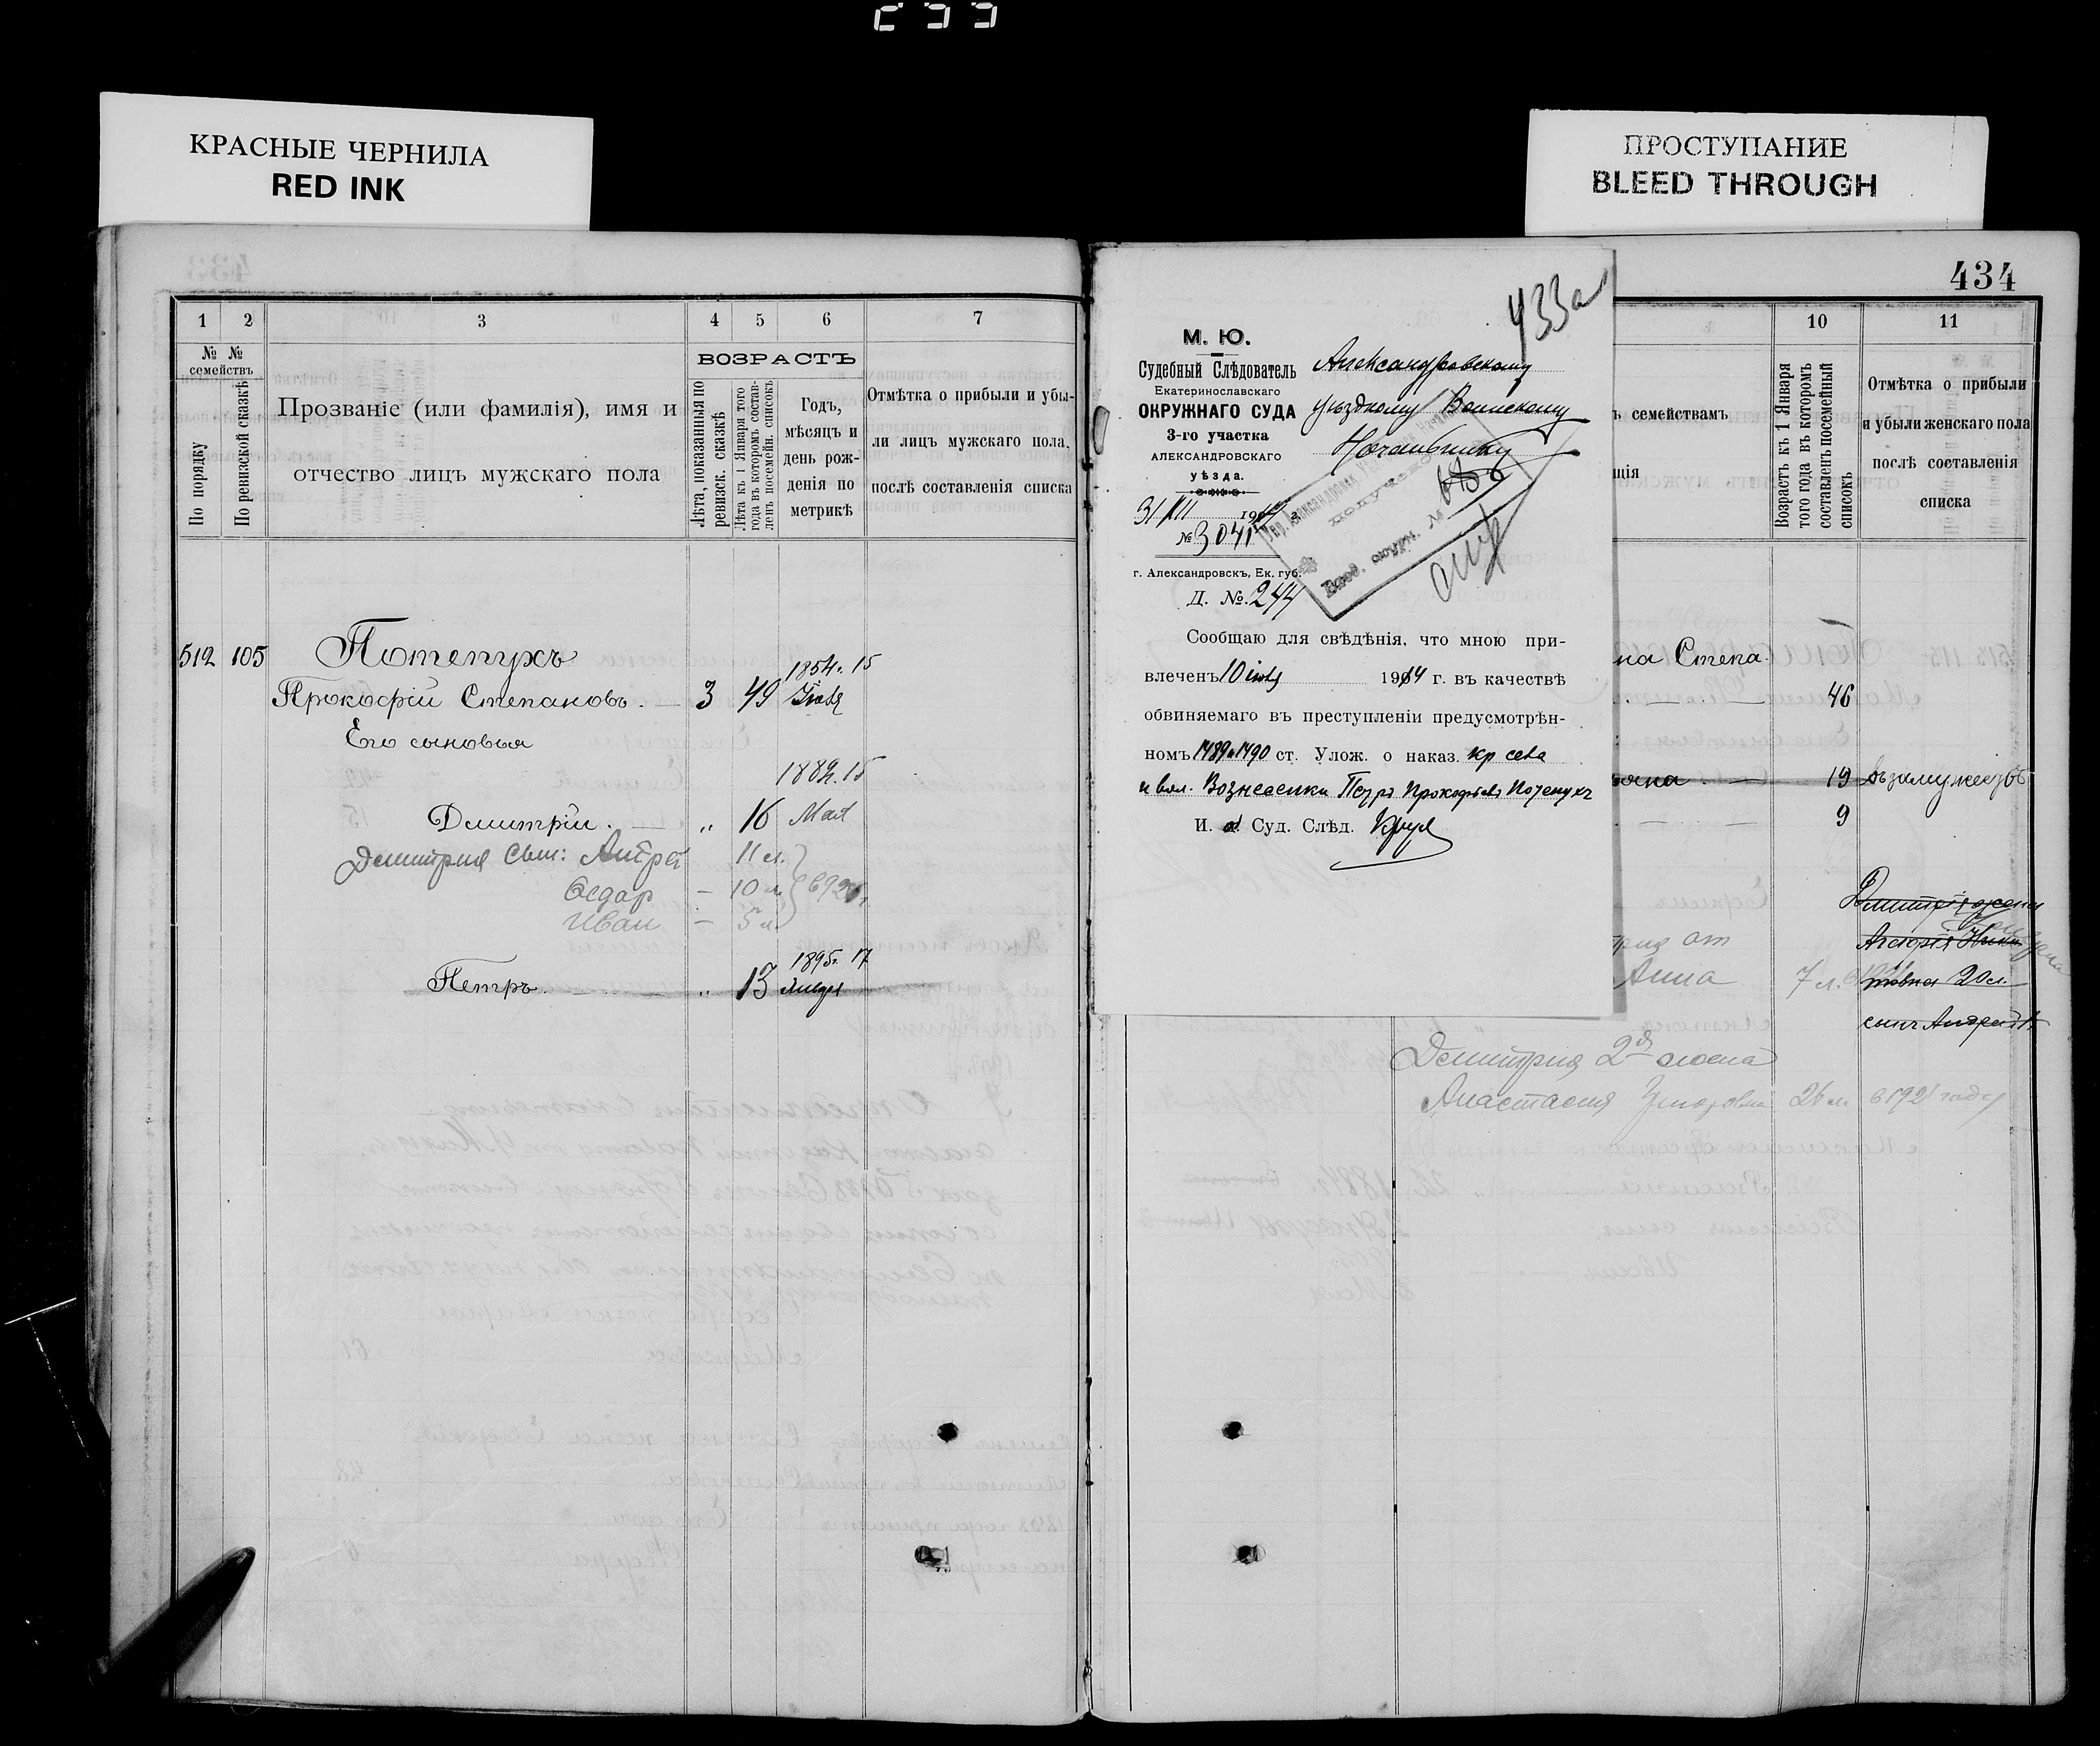 КРАСНЫЕ ЧЕРНИЛА
RED INK
ПРОСТУПАНИЕ
BLEED THROUGH
1 2 3 4 5 6 7
№ № семействъ
По порядку
По ревизской сказкѣ
Прозваніе (или фамилія), имя и
отчество лицъ мужскаго пола
ВОЗРАСТЪ
Лѣта, показанныя по ревизск. сказкѣ
Лѣта къ 1 Января того года въ которомъ составленъ посемейн. списокъ
Годъ,
мѣсяцъ и
день рож-
денія по
метрикѣ
Отмѣтка о прибыли и убы-
ли лицъ мужскаго пола,
послѣ составленія списка
512 105 Потепухъ
1854. 15
Прокофій Степановъ. 3 49
Его сыновья
1887. 15
Дмитрій. „ 16 Мая
Дмитрия сын: Андрей 11 л.
Федор — 10 л.
Иван — 5 л.
1895. 17
Петръ. „ 13 Января
433а
М. Ю.
Судебный Слѣдователь
Екатеринославскаго
ОКРУЖНАГО СУДА
3-го участка
АЛЕКСАНДРОВСКАГО
уѣзда.
31/XII 19 г.
№ 3041
г. Александровскъ, Ек. губ.
Д. № 244
Александровскому
уѣздному Воинскому
Начальнику
Сообщаю для свѣдѣнія, что мною при-
влеченъ 10 1914 г. въ качествѣ
обвиняемаго въ преступленіи предусмотрѣн-
номъ 1489 и 1490 ст. Улож. о наказ. кр села
и вол. Вознесенки Петръ Прокофьевъ Потепухъ
И. д. Суд. Слѣд.
434
10 11
ъ семействамъ
Возрастъ къ 1 Января того года въ которомъ составленъ посемейный списокъ
Отмѣтка о прибыли
и убыли женскаго пола
послѣ составленія
списка
на Степа.
46
19 въ замужествѣ
9
Дмитрія жена
20 л.
сынъ Андрей
от
Анна 7 л.
Дмитрия 2я жена
Анастасия 26 л. в 1921 году